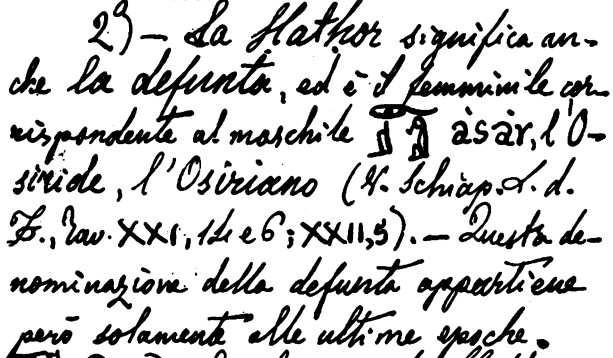 2º) — La Hathor significa an-
che la defunta, ed è il femminile cor-
rispondente al maschile àsàr, l'O-
siride, l'Osiriano (V. Schiap. L. d.
F., Tav. XXI, 14 e 6; XXII, 5). — Questa de-
nominazione della defunta appartiene
però solamente alle ultime epoche.